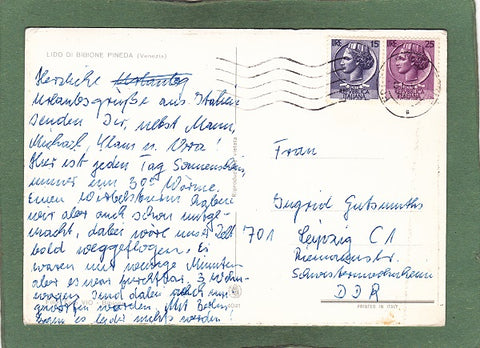 LIDO DI BIBIONE PINEDA (Venezia)
Herzliche
Urlaubsgrüße aus Italien
senden Dir, nebst Mann,
Michael, Klaus u. Vera!
Hier ist jeden Tag Sonnenschein,
immer um 30° Wärme.
Einen Wirbelsturm haben
wir aber auch schon mitge-
macht, dabei wäre unser Zelt
bald weggeflogen. Es
waren nur wenige Minuten
aber es war furchtbar, 3 Wohn-
wagen sind dabei auch um-
geworfen worden. Mit
es leider nichts werden
15
25
REPUBBLICA
ITALIANA
REPUBBLICA
ITALIANA
Frau
Ingrid Gutsmuths
701 Leipzig C1
Riemannstr.
Schwesternwohnheim
DDR
PRINTED IN ITALY